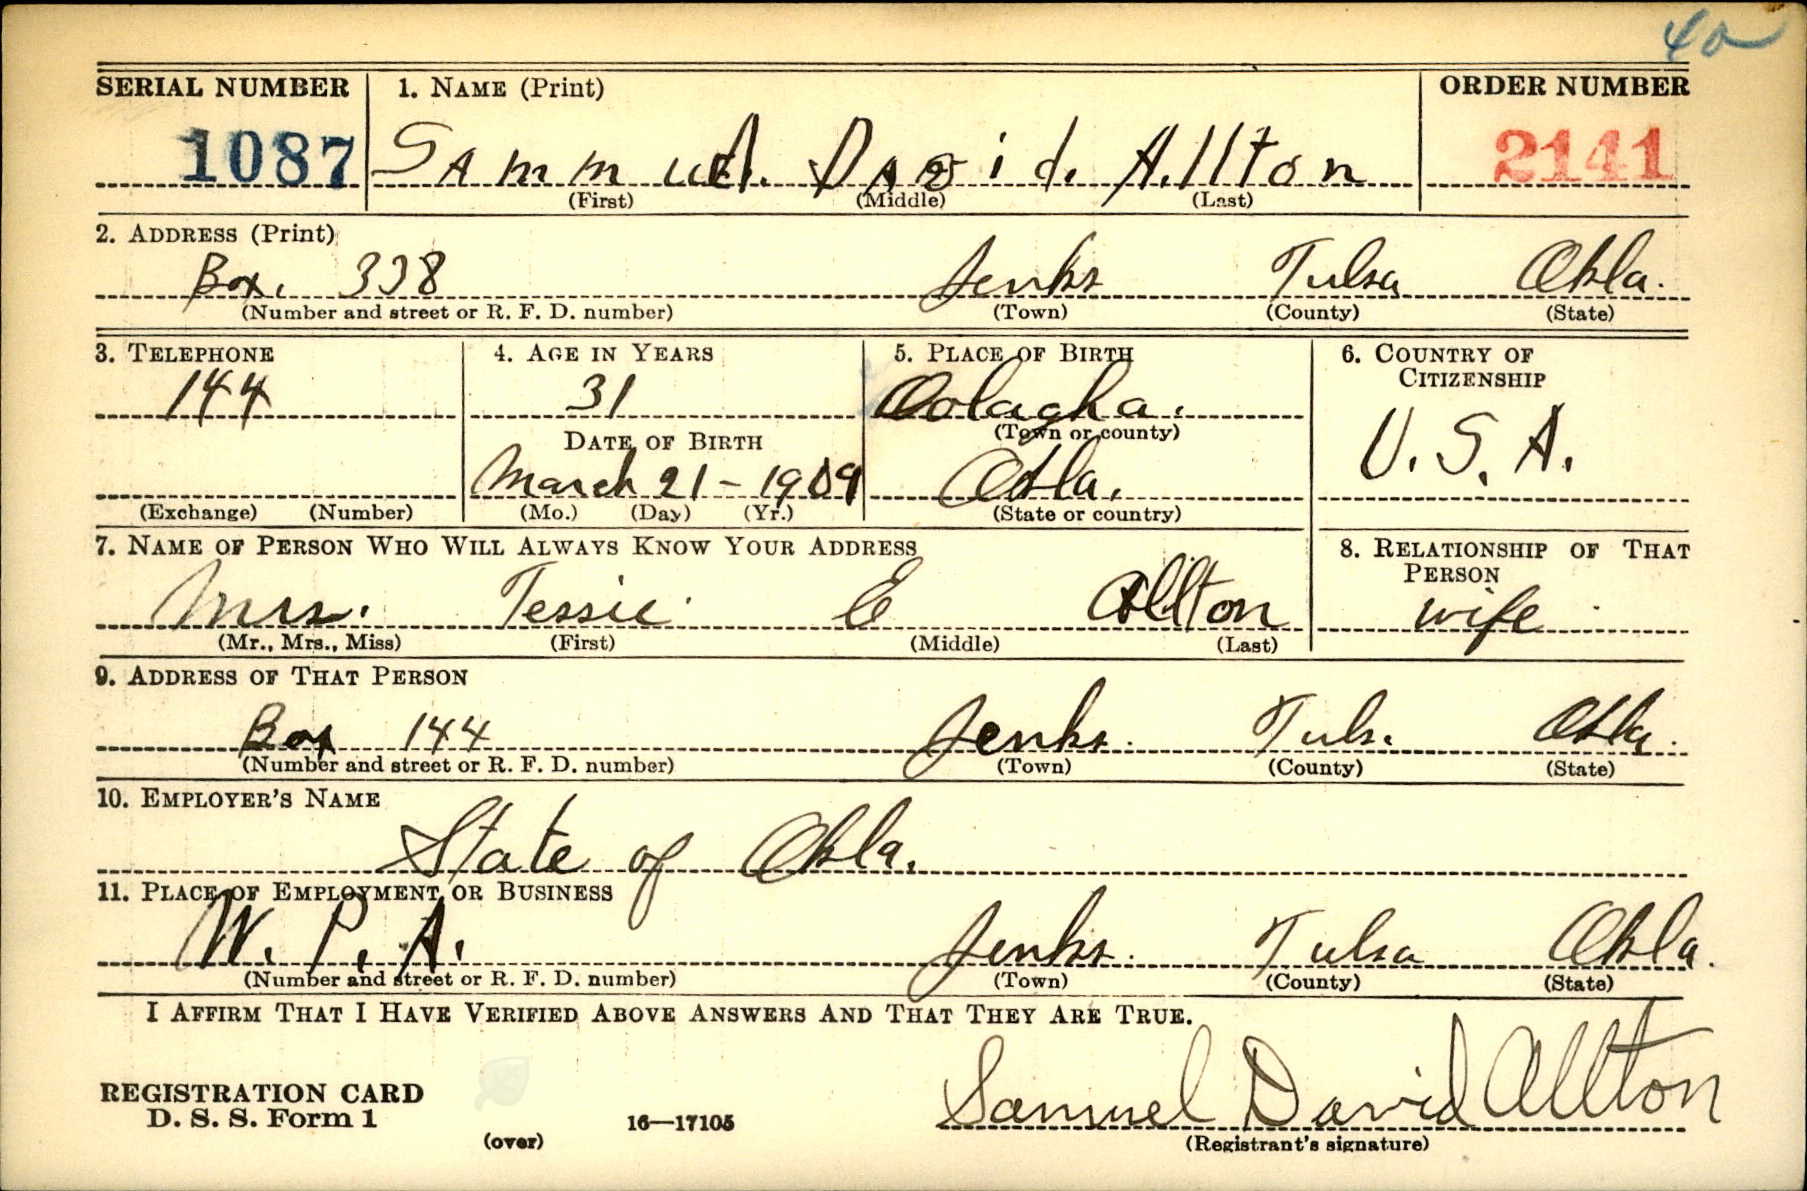 40
SERIAL NUMBER 1. NAME (Print) ORDER NUMBER
1087 Sammuel. David. Allton 2141
(First) (Middle) (Last)
2. ADDRESS (Print)
Box. 338 Jenks Tulsa Okla.
(Number and street or R. F. D. number) (Town) (County) (State)
3. TELEPHONE 4. AGE IN YEARS 5. PLACE OF BIRTH 6. COUNTRY OF CITIZENSHIP
144 31 Oolagha. U. S. A.
(Town or county)
DATE OF BIRTH
March 21 - 1909 Okla.
(Exchange) (Number) (Mo.) (Day) (Yr.) (State or country)
7. NAME OF PERSON WHO WILL ALWAYS KNOW YOUR ADDRESS 8. RELATIONSHIP OF THAT PERSON
Mrs. Tessie E Allton wife
(Mr., Mrs., Miss) (First) (Middle) (Last)
9. ADDRESS OF THAT PERSON
Box 144 Jenks. Tuls. Okla.
(Number and street or R. F. D. number) (Town) (County) (State)
10. EMPLOYER'S NAME
State of Okla.
11. PLACE OF EMPLOYMENT OR BUSINESS
W. P. A. Jenks. Tulsa Okla.
(Number and street or R. F. D. number) (Town) (County) (State)
I AFFIRM THAT I HAVE VERIFIED ABOVE ANSWERS AND THAT THEY ARE TRUE.
Samuel David Allton
REGISTRATION CARD
D. S. S. Form 1 16—17105
(over) (Registrant's signature)